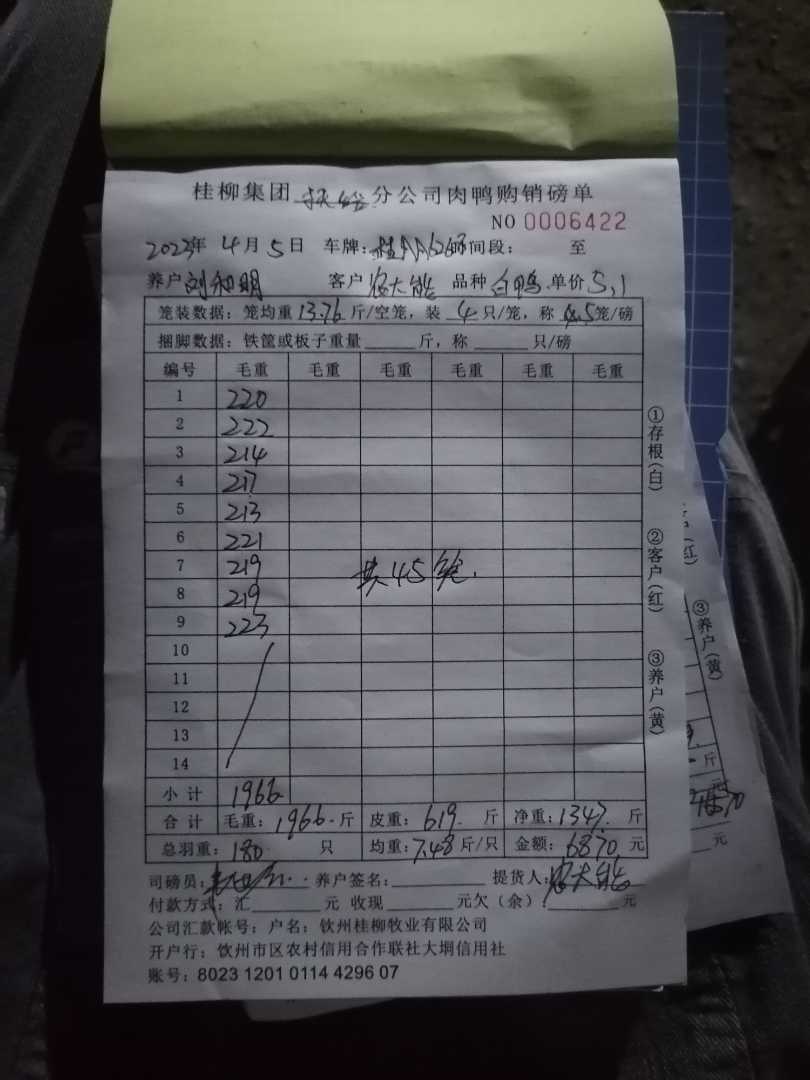 桂柳集团 分公司肉鸭购销磅单
NO 0006422
2023年 4月5日 车牌: 间段: 至
养户 刘和明 客户 农大能 品种 白鸭 单价 5.1
笼装数据: 笼均重 13.76 斤/空笼, 装 4 只/笼, 称 5 笼/磅
捆脚数据: 铁筐或板子重量 斤, 称 只/磅
编号 毛重 毛重 毛重 毛重 毛重 毛重
1 220
2 222
3 214
4 217
5 213
6 221
7 219 共45笼.
8 219
9 223
10
11
12
13
14
小计 1966
合计 毛重: 1966.斤 皮重: 619. 斤 净重: 1347. 斤
总羽重: 180 只 均重: 7.48 斤/只 金额: 6870 元
司磅员: 养户签名: 提货人: 农大能
付款方式: 汇 元 收现 元欠(余) 元
公司汇款帐号: 户名: 钦州桂柳牧业有限公司
开户行: 钦州市区农村信用合作联社大垌信用社
账号: 8023 1201 0114 4296 07
①存根(白)
②客户(红)
③养户(黄)
户(红)
③养户(黄)
斤
元